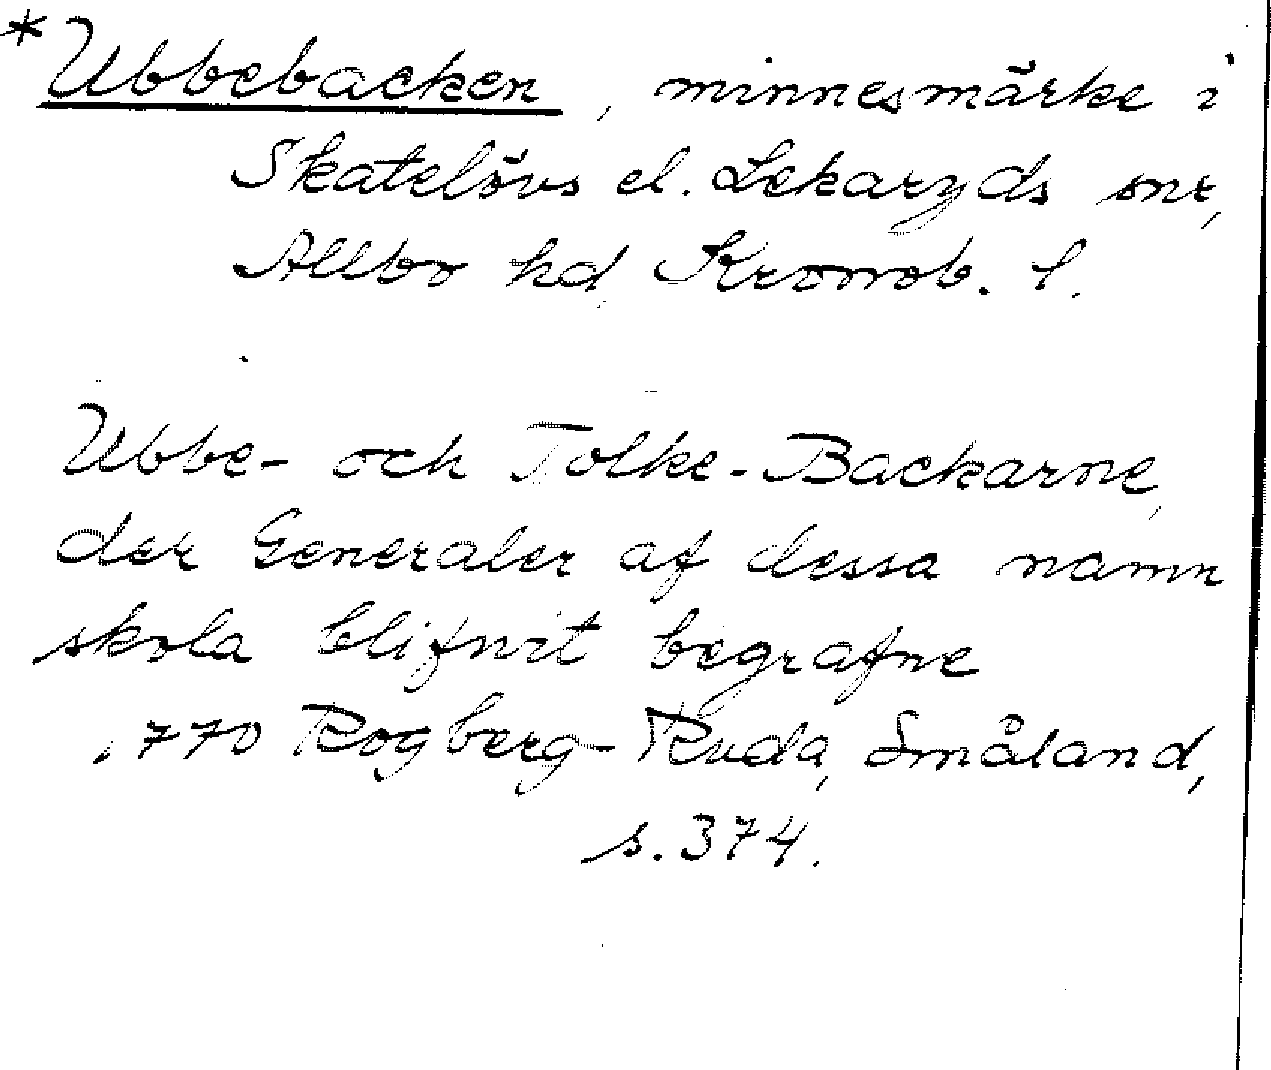 *Ubbebacken, minnesmärke i
Skatelövs el. Lekaryds snr,
Allbo hd, Kronob. l.
Ubbe- och Tolke-Backarne,
der Generaler af dessa namn
skola blifvit begrafne
1770 Rogberg-Ruda, Småland,
s. 374.